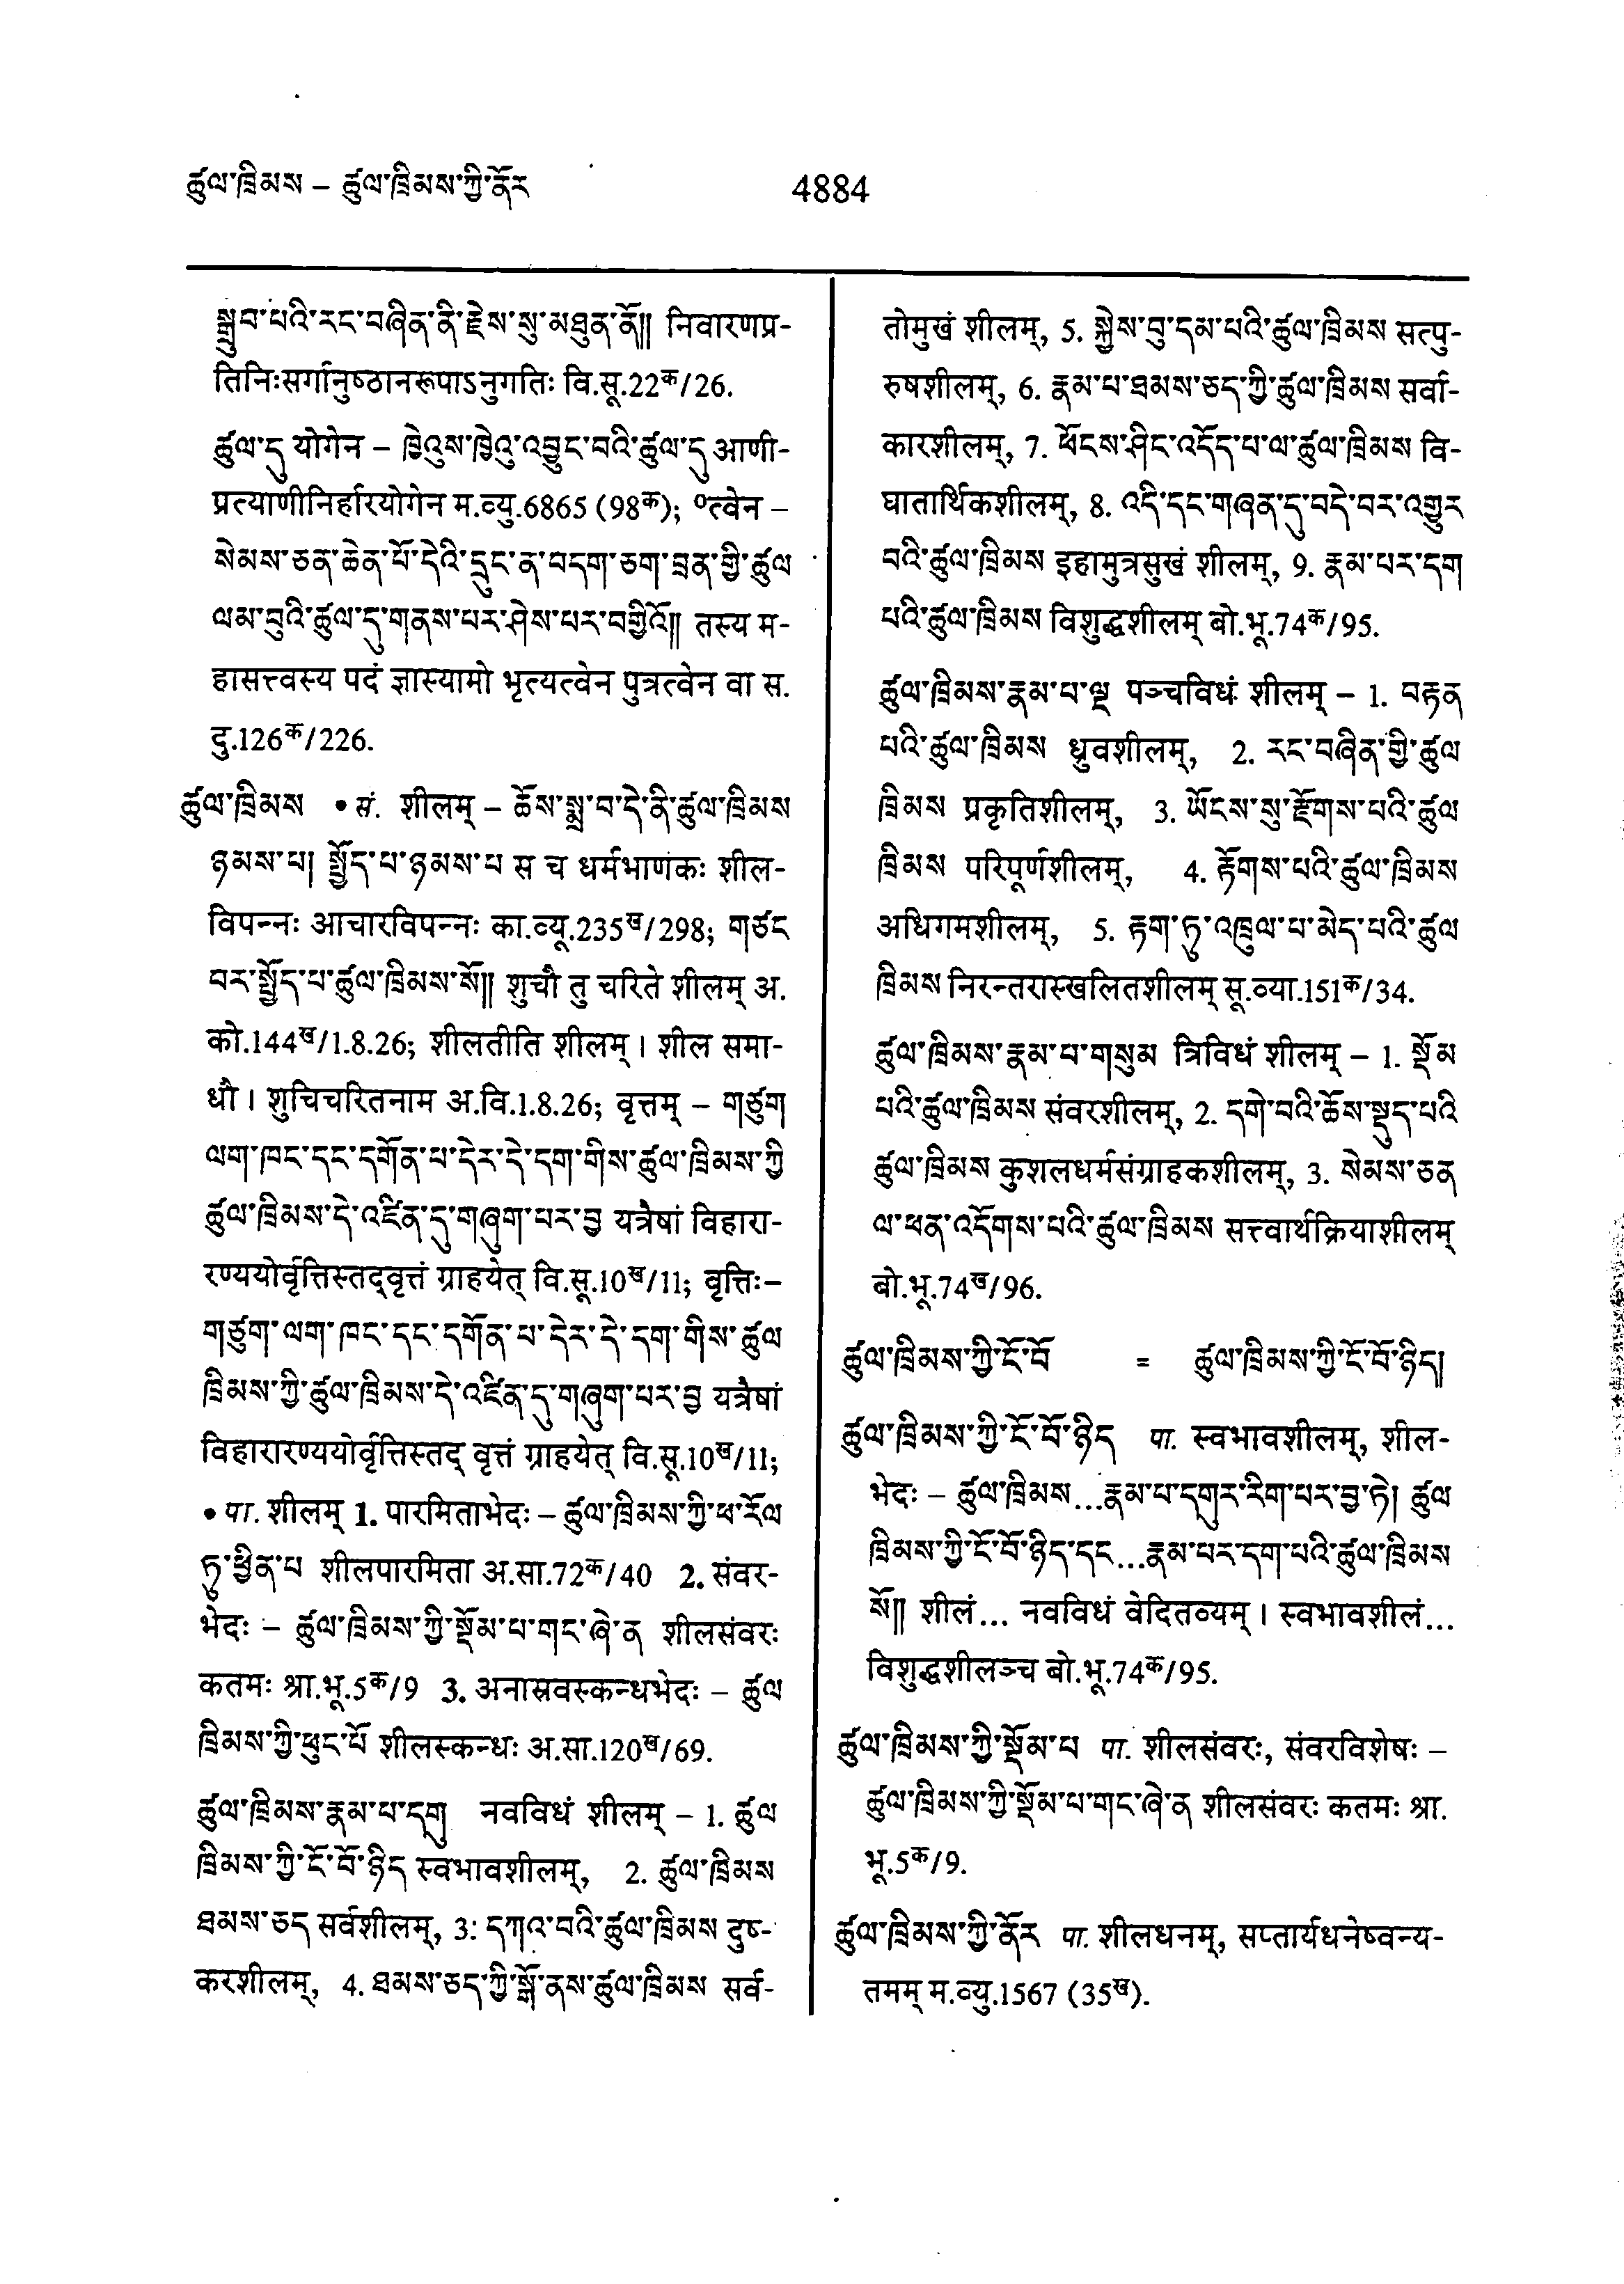 ཚུལ་ཁྲིམས – ཚུལ་ཁྲིམས་ཀྱི་ནོར
4884
སྒྲུབ་པའི་རང་བཞིན་ནི་རྗེས་སུ་མཐུན་ནོ།། निवारणप्र-
तिनिःसर्गानुष्ठानरूपाऽनुगतिः वि.सू.22क/26.
ཚུལ་དུ योगेन – ཁྱེའུས་ཁྱེའུ་འབྱུང་བའི་ཚུལ་དུ आणी-
प्रत्याणीनिर्हारयोगेन म.व्यु.6865 (98क); ०त्वेन –
སེམས་ཅན་ཆེན་པོ་དེའི་དྲུང་ན་བདག་ཅག་བྲན་གྱི་ཚུལ
ལམ་བུའི་ཚུལ་དུ་གནས་པར་ཤེས་པར་བགྱིའོ།། तस्य म-
हासत्त्वस्य पदं ज्ञास्यामो भृत्यत्वेन पुत्रत्वेन वा स.
दु.126क/226.
ཚུལ་ཁྲིམས • सं. शीलम् – ཆོས་སྨྲ་བ་དེ་ནི་ཚུལ་ཁྲིམས
ཉམས་པ། སྤྱོད་པ་ཉམས་པ स च धर्मभाणकः शील-
विपन्नः आचारविपन्नः का.व्यू.235ख/298; གཙང
བར་སྤྱོད་པ་ཚུལ་ཁྲིམས་སོ།། शुचौ तु चरिते शीलम् अ.
को.144ख/1.8.26; शीलतीति शीलम्। शील समा-
धौ। शुचिचरितनाम अ.वि.1.8.26; वृत्तम् – གཙུག
ལག་ཁང་དང་དགོན་པ་དེར་དེ་དག་གིས་ཚུལ་ཁྲིམས་ཀྱི
ཚུལ་ཁྲིམས་དེ་འཛིན་དུ་གཞུག་པར་བྱ यत्रैषां विहारा-
रण्ययोर्वृत्तिस्तद्वृत्तं ग्राहयेत् वि.सू.10ख/11; वृत्तिः–
གཙུག་ལག་ཁང་དང་དགོན་པ་དེར་དེ་དག་གིས་ཚུལ
ཁྲིམས་ཀྱི་ཚུལ་ཁྲིམས་དེ་འཛིན་དུ་གཞུག་པར་བྱ यत्रैषां
विहारारण्ययोर्वृत्तिस्तद् वृत्तं ग्राहयेत् वि.सू.10ख/11;
• पा. शीलम् 1. पारमिताभेदः – ཚུལ་ཁྲིམས་ཀྱི་ཕ་རོལ
ཏུ་ཕྱིན་པ शीलपारमिता अ.सा.72क/40 2. संवर-
भेदः – ཚུལ་ཁྲིམས་ཀྱི་སྡོམ་པ་གང་ཞེ་ན शीलसंवरः
कतमः श्रा.भू.5क/9 3. अनास्रवस्कन्धभेदः – ཚུལ
ཁྲིམས་ཀྱི་ཕུང་པོ शीलस्कन्धः अ.सा.120ख/69.
ཚུལ་ཁྲིམས་རྣམ་པ་དགུ नवविधं शीलम् – 1. ཚུལ
ཁྲིམས་ཀྱི་ངོ་བོ་ཉིད स्वभावशीलम्, 2. ཚུལ་ཁྲིམས
ཐམས་ཅད सर्वशीलम्, 3: དཀའ་བའི་ཚུལ་ཁྲིམས दुष्-
करशीलम्, 4. ཐམས་ཅད་ཀྱི་སྒོ་ནས་ཚུལ་ཁྲིམས सर्व-
तोमुखं शीलम्, 5. སྐྱེས་བུ་དམ་པའི་ཚུལ་ཁྲིམས सत्पु-
रुषशीलम्, 6. རྣམ་པ་ཐམས་ཅད་ཀྱི་ཚུལ་ཁྲིམས सर्वा-
कारशीलम्, 7. ཕོངས་ཤིང་འདོད་པ་ལ་ཚུལ་ཁྲིམས वि-
घातार्थिकशीलम्, 8. འདི་དང་གཞན་དུ་བདེ་བར་འགྱུར
བའི་ཚུལ་ཁྲིམས इहामुत्रसुखं शीलम्, 9. རྣམ་པར་དག
པའི་ཚུལ་ཁྲིམས विशुद्धशीलम् बो.भू.74क/95.
ཚུལ་ཁྲིམས་རྣམ་པ་ལྔ पञ्चविधं शीलम् – 1. བརྟན
པའི་ཚུལ་ཁྲིམས ध्रुवशीलम्, 2. རང་བཞིན་གྱི་ཚུལ
ཁྲིམས प्रकृतिशीलम्, 3. ཡོངས་སུ་རྫོགས་པའི་ཚུལ
ཁྲིམས परिपूर्णशीलम्, 4. རྟོགས་པའི་ཚུལ་ཁྲིམས
अधिगमशीलम्, 5. རྟག་ཏུ་འཁྲུལ་པ་མེད་པའི་ཚུལ
ཁྲིམས निरन्तरास्खलितशीलम् सू.व्या.151क/34.
ཚུལ་ཁྲིམས་རྣམ་པ་གསུམ त्रिविधं शीलम् – 1. སྡོམ
པའི་ཚུལ་ཁྲིམས संवरशीलम्, 2. དགེ་བའི་ཆོས་སྡུད་པའི
ཚུལ་ཁྲིམས कुशलधर्मसंग्राहकशीलम्, 3. སེམས་ཅན
ལ་ཕན་འདོགས་པའི་ཚུལ་ཁྲིམས सत्त्वार्थक्रियाशीलम्
बो.भू.74ख/96.
ཚུལ་ཁྲིམས་ཀྱི་ངོ་བོ = ཚུལ་ཁྲིམས་ཀྱི་ངོ་བོ་ཉིད།
ཚུལ་ཁྲིམས་ཀྱི་ངོ་བོ་ཉིད पा. स्वभावशीलम्, शील-
भेदः – ཚུལ་ཁྲིམས...རྣམ་པ་དགུར་རིག་པར་བྱ་ཏེ། ཚུལ
ཁྲིམས་ཀྱི་ངོ་བོ་ཉིད་དང...རྣམ་པར་དག་པའི་ཚུལ་ཁྲིམས
སོ།། शीलं... नवविधं वेदितव्यम्। स्वभावशीलं...
विशुद्धशीलञ्च बो.भू.74क/95.
ཚུལ་ཁྲིམས་ཀྱི་སྡོམ་པ पा. शीलसंवरः, संवरविशेषः –
ཚུལ་ཁྲིམས་ཀྱི་སྡོམ་པ་གང་ཞེ་ན शीलसंवरः कतमः श्रा.
भू.5क/9.
ཚུལ་ཁྲིམས་ཀྱི་ནོར पा. शीलधनम्, सप्तार्यधनेष्वन्य-
तमम् म.व्यु.1567 (35ख).